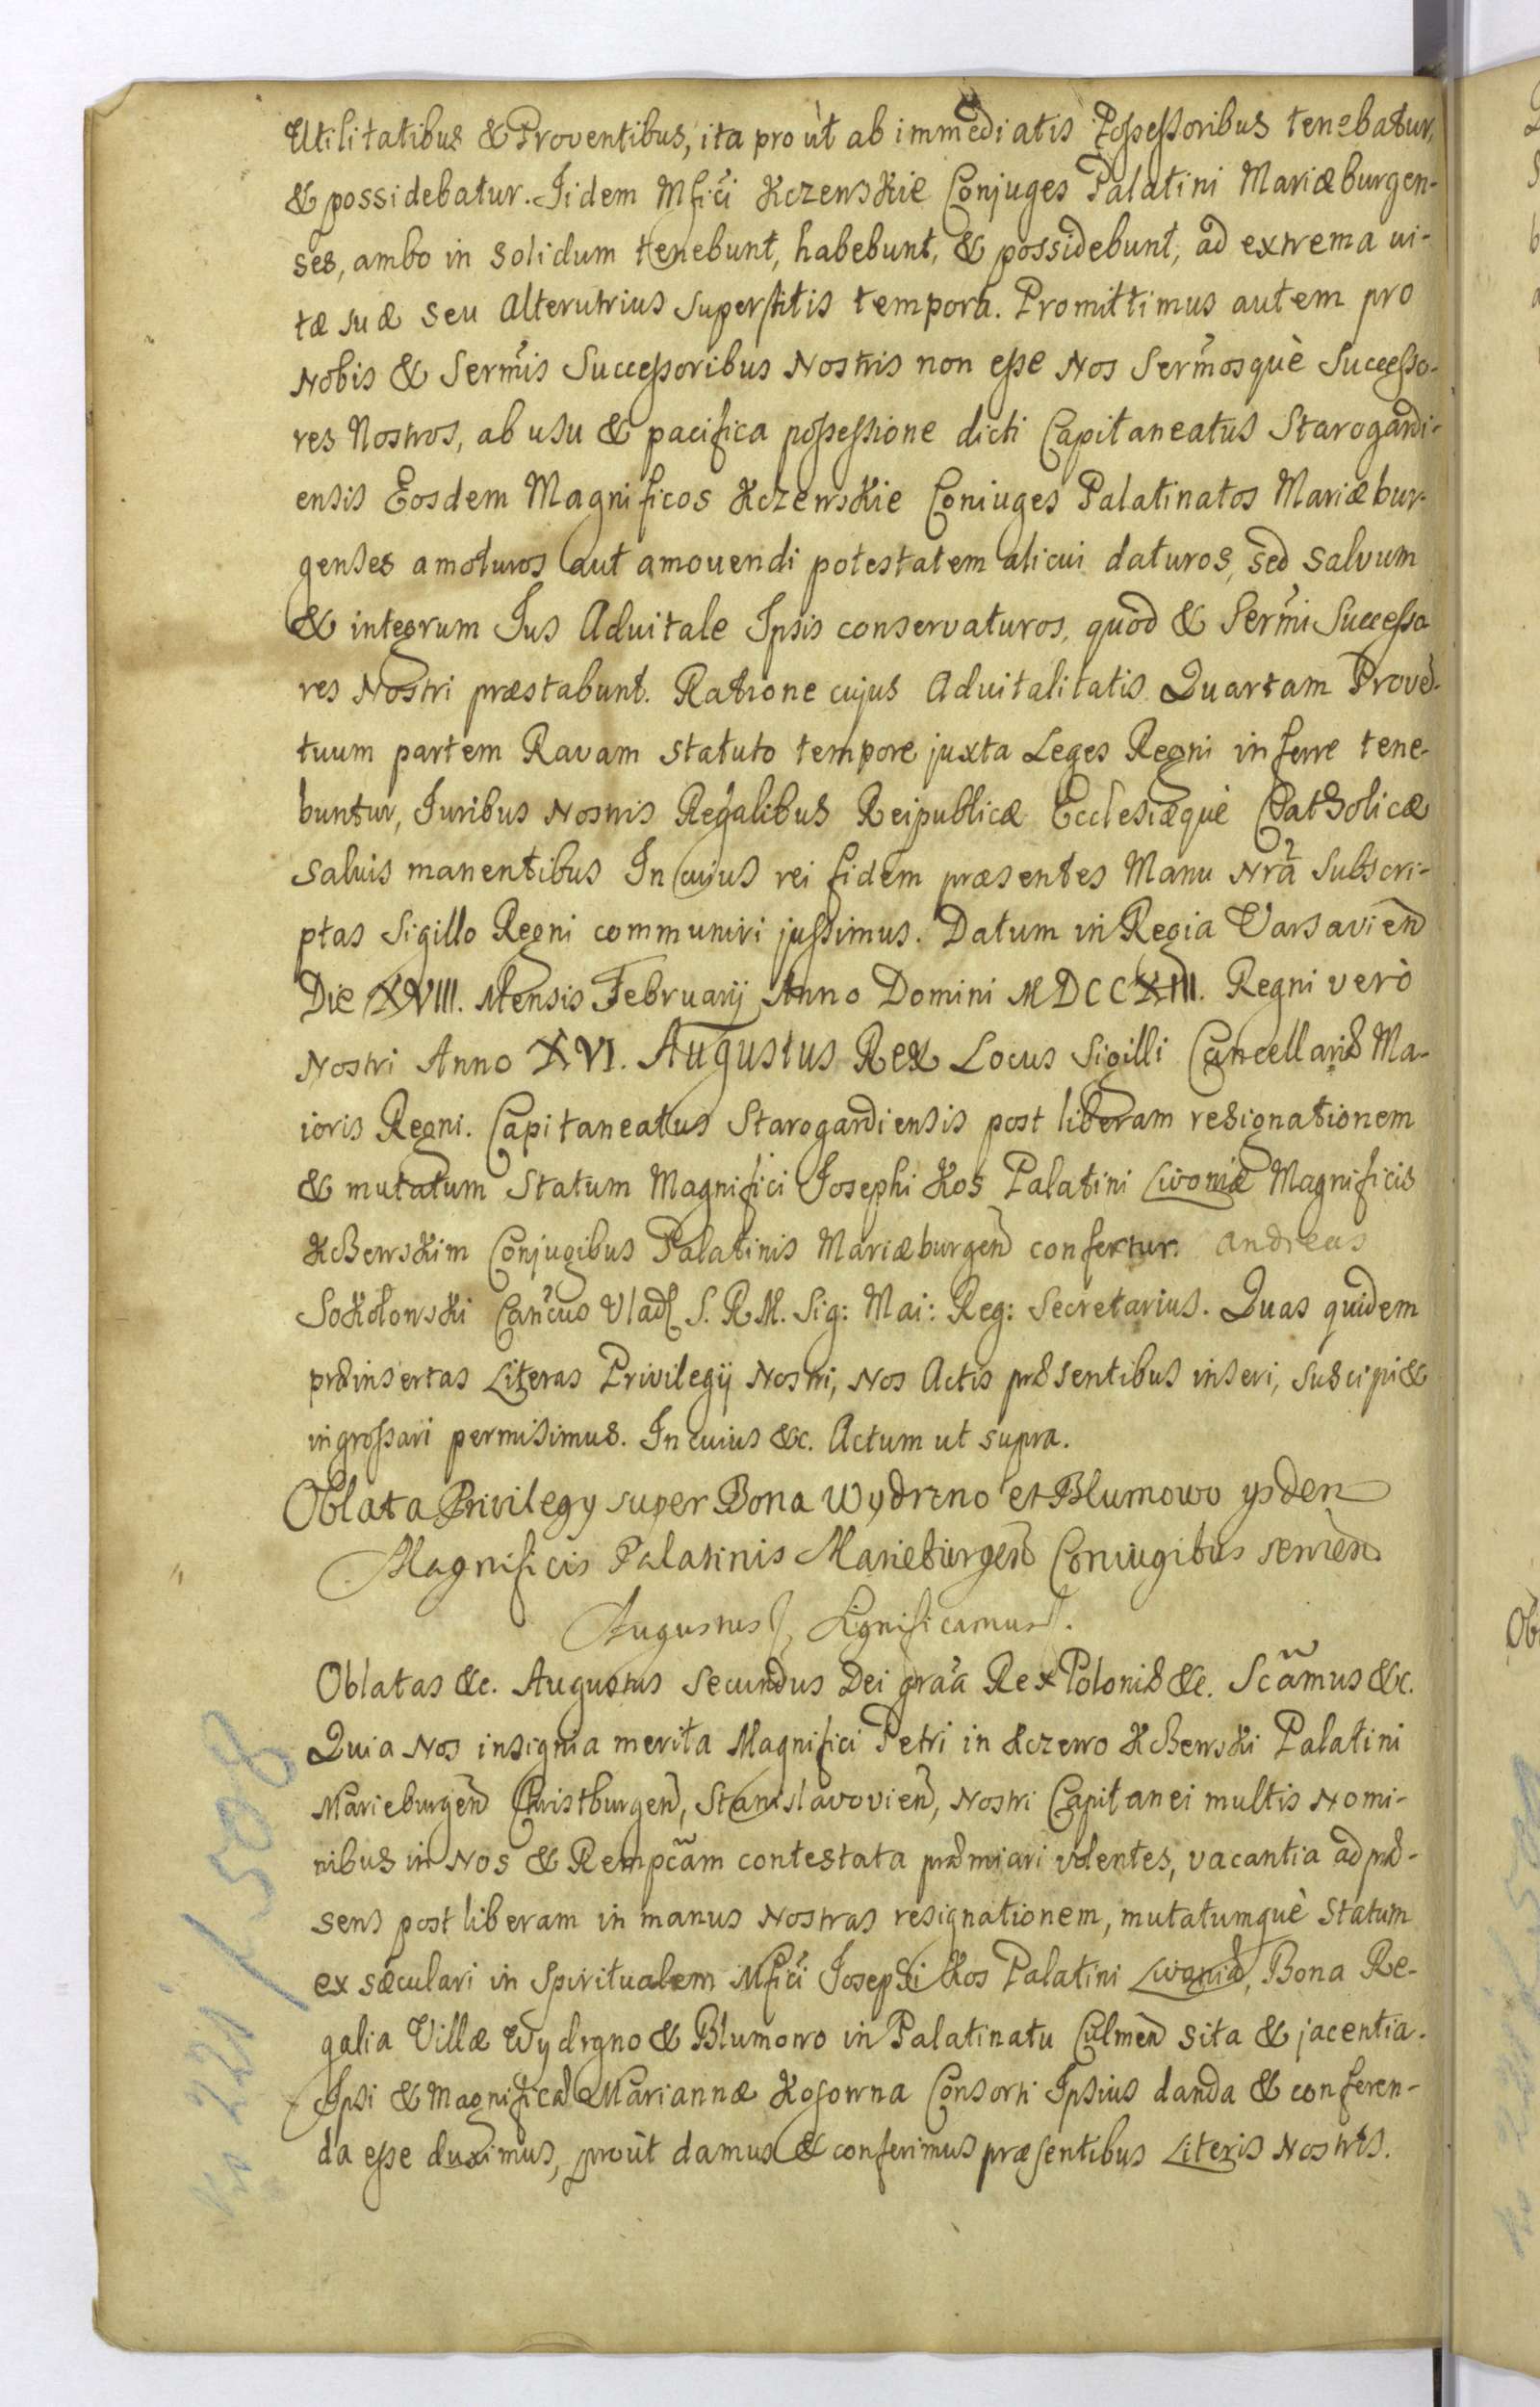 Utilitatibus & Proventibus, ita pro ùt ab immediatis Possessoribus tenebatur,
& possidebatur. Iidem Mfici Kczewskie Conjuges Palatini Mariæburgen-
ses, ambo in solidum tenebunt, habebunt, & possidebunt, ad extrema vi-
tæ suæ seu Alterutrius superstitis tempora. Promittimus autem pro
Nobis & Sermis Successoribus Nostris non esse Nos Sermosquè Successo-
res Nostros, ab usu & pacifica possessione dicti Capitaneatus Starogardi-
ensis Eosdem Magnificos Kczewskie Coniuges Palatinatos Mariæbur-
genses amoturos aut amouendi potestatem alicui daturos, sed salvum
& integrum Jus Aduitale Ipsis conservaturos, quod & Sermi Successo
res Nostri præstabunt. Ratione cujus Aduitalitatis Quartam Proven-
tuum partem Ravam statuto tempore juxta Leges Regni inferre tene-
buntur, Iuribus Nostris Regalibus Reipublicæ Ecclesiæquè Catholicæ
saluis manentibus In cujus rei fidem præsentes Manu Nrã Subscri-
ptas Sigillo Regni communiri jussimus. Datum in Regia Varsavien
Die XVIII. Mensis Februarij Anno Domini MDCCXIII. Regni verò
Nostri Anno XVI. Augustus Rex Locus Sigilli Cancellariæ Ma-
ioris Regni. Capitaneatus Starogardiensis post liberam resignationem
& mutatum Statum Magnifici Josephi Kos Palatini Livoniæ Magnificis
Kczewskim Conjugibus Palatinis Mariæburgen confertur. Andreas
Sokołowski Cancus Vladʃ S. R. M. Sig: Mai: Reg: Secretarius. Quas quidem
præinsertas Literas Privilegij Nostri, Nos Actis præsentibus inseri, suscipi &
ingrossari permisimus. In cuius &c. Actum ut supra.
Oblata Privilegy super Bona Wydrzno et Blumowo ysdem
Magnificis Palatinis Marieburgen Coniugibus servien
Augustus Significamus.
Oblatas &c. Augustus Secundus Dei graa Rex Poloniæ &c. Scãmus &c.
Quia Nos insignia merita Magnifici Petri in Kczewo Kczewski Palatini
Marieburgen Christburgen, Stanislavovien, Nostri Capitanei multis Nomi-
nibus in Nos & Rempcãm contestata præmiari volentes, vacantia ad præ-
sens post liberam in manus Nostras resignationem, mutatumquè Statum
ex sæculari in Spiritualem Mfici Josephi Kos Palatini Livoniæ, Bona Re-
galia Villæ Wydrgno & Blumowo in Palatinatu Culmen sita & jacentia.
Ipsi & Magnificæ Mariannæ Kosowna Consorti Ipsius danda & conferen-
da esse duximus, proùt damus & conferimus præsentibus Literis Nostris.
No 221 / 508